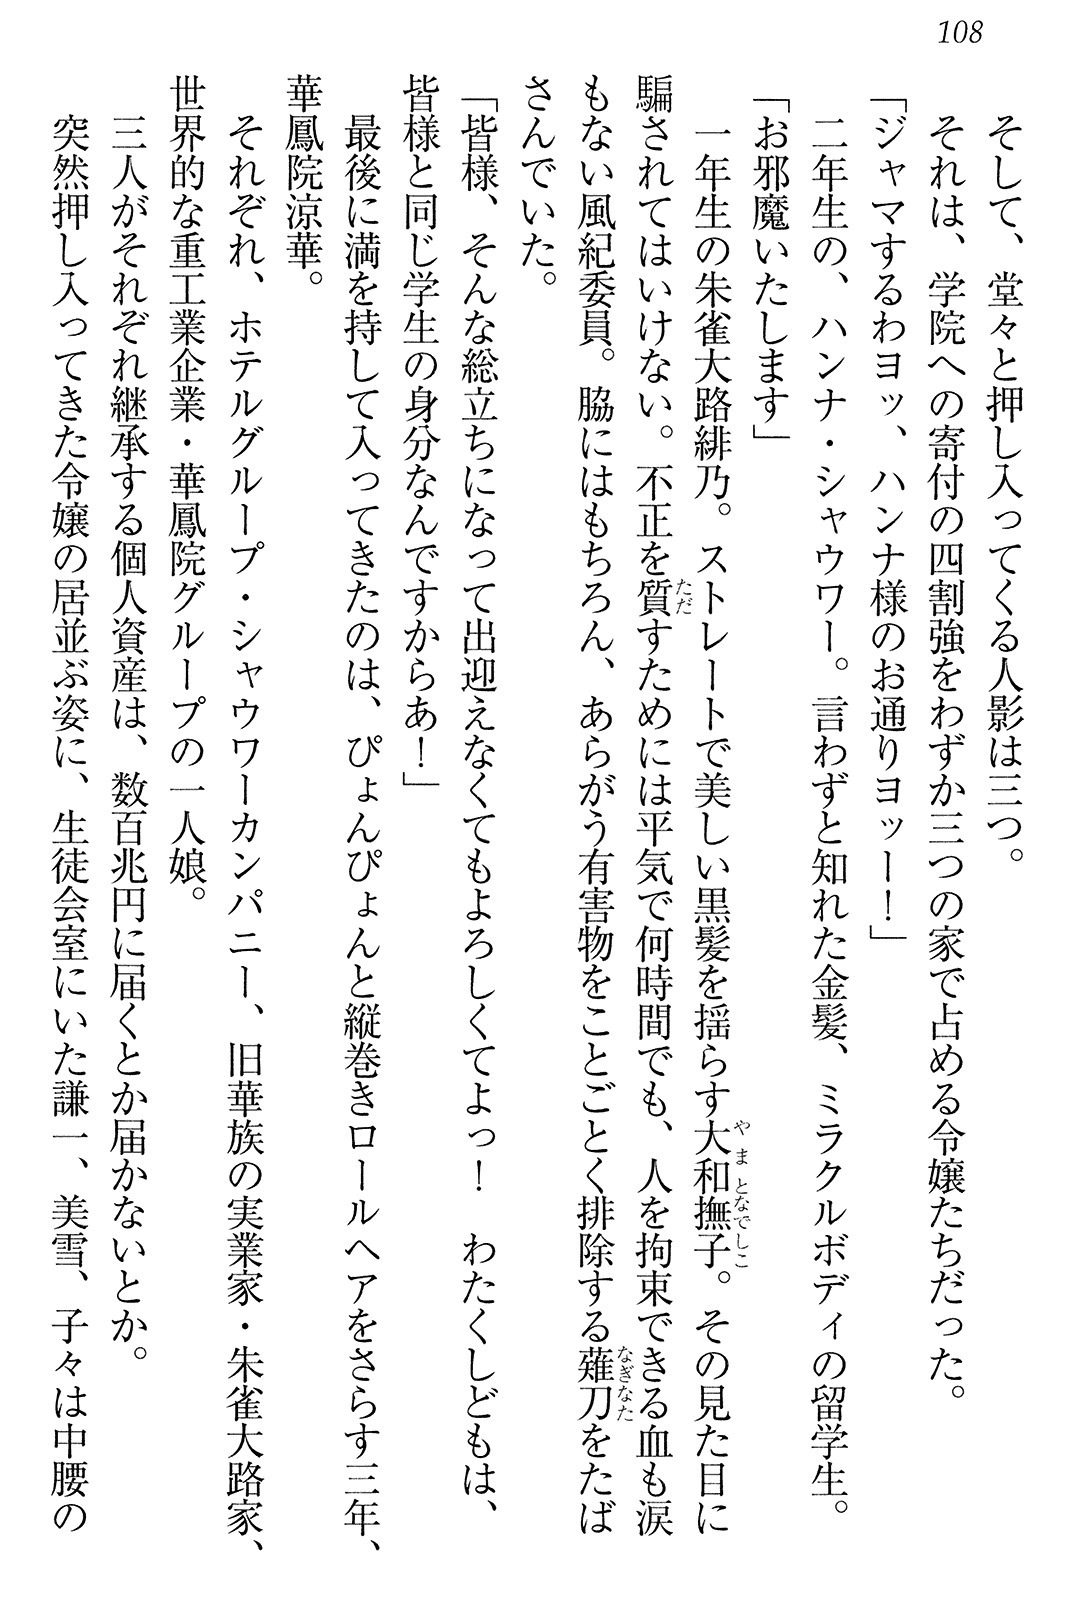 108
そして、堂々と押し入ってくる人影は三つ。
それは、学院への寄付の四割強をわずか三つの家で占める令嬢たちだった。
「ジャマするわヨッ、ハンナ様のお通りヨッー！」
二年生の、ハンナ・シャウワー。言わずと知れた金髪、ミラクルボディの留学生。
「お邪魔いたします」
一年生の朱雀大路緋乃。ストレートで美しい黒髪を揺らす大和撫子。その見た目に
やまとなでしこ
騙されてはいけない。不正を質すためには平気で何時間でも、人を拘束できる血も涙
ただ
もない風紀委員。脇にはもちろん、あらがう有害物をことごとく排除する薙刀をたば
なぎなた
さんでいた。
「皆様、そんな総立ちになって出迎えなくてもよろしくてよっ！　わたくしどもは、
皆様と同じ学生の身分なんですからあ！」
最後に満を持して入ってきたのは、ぴょんぴょんと縦巻きロールヘアをさらす三年、
華鳳院涼華。
それぞれ、ホテルグループ・シャウワーカンパニー、旧華族の実業家・朱雀大路家、
世界的な重工業企業・華鳳院グループの一人娘。
三人がそれぞれ継承する個人資産は、数百兆円に届くとか届かないとか。
突然押し入ってきた令嬢の居並ぶ姿に、生徒会室にいた謙一、美雪、子々は中腰の